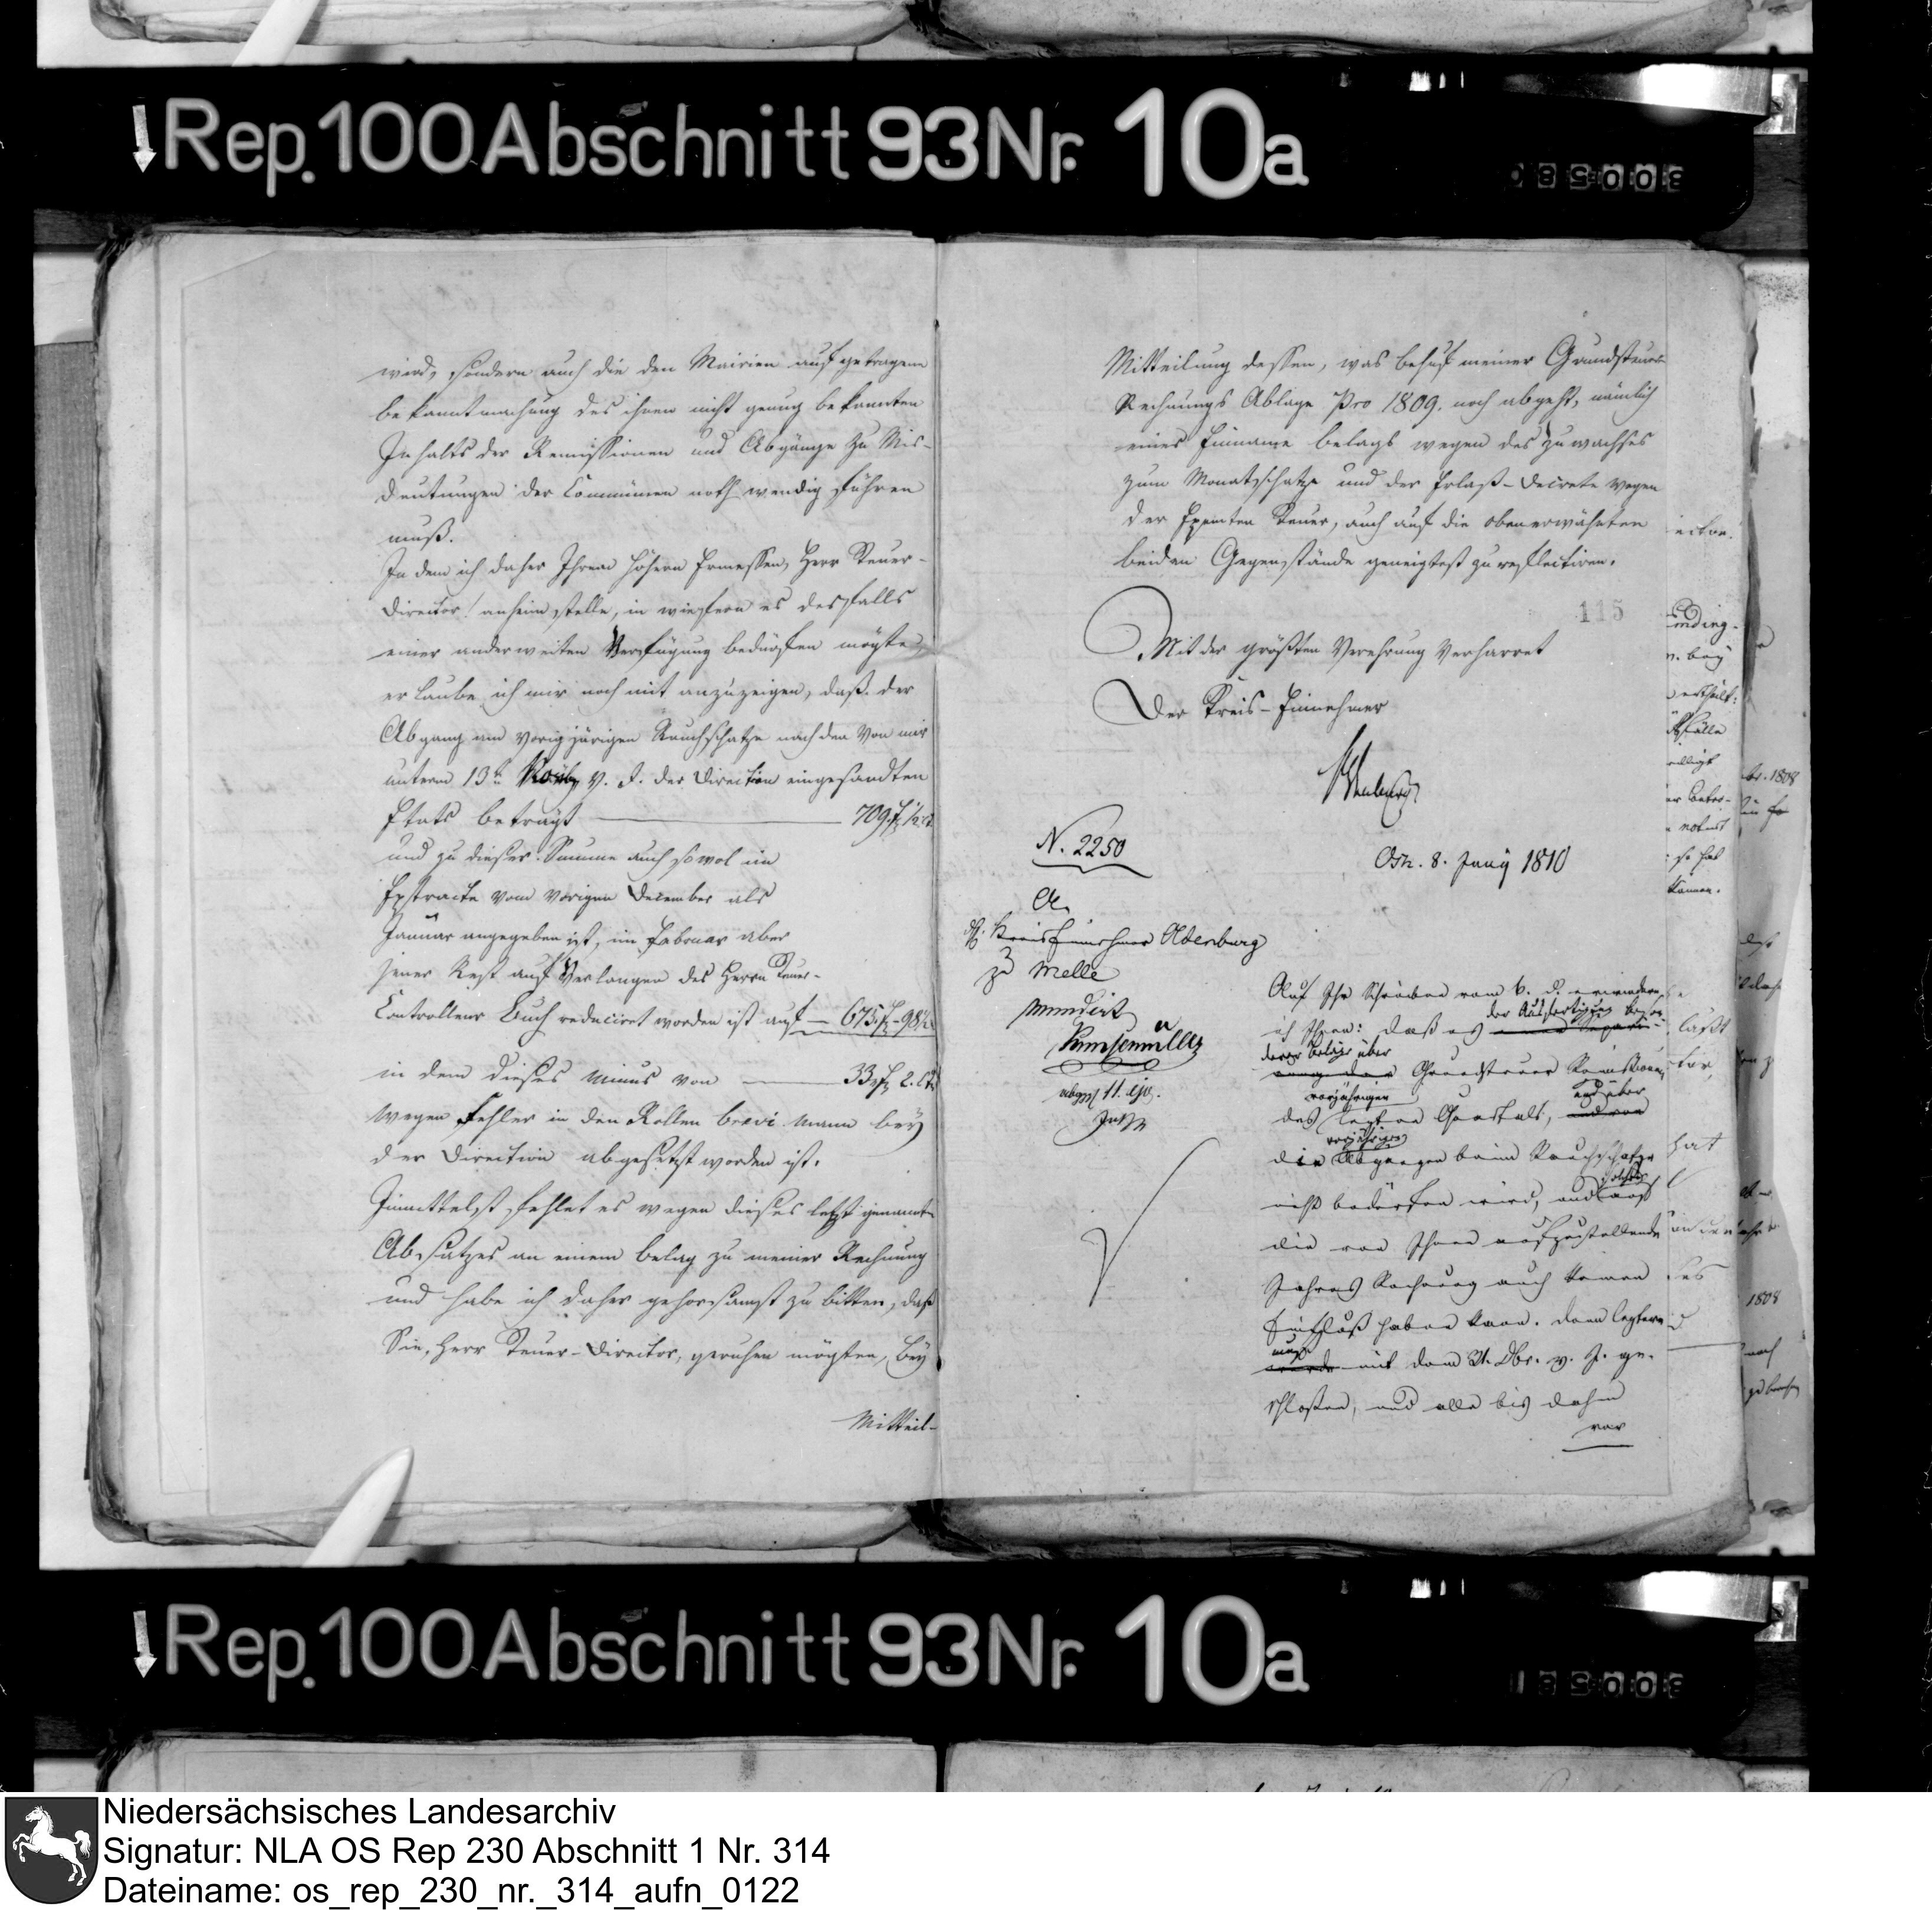 Rep.100 Abschnitt 93 Nr. 10a
wird, sondern auch die den Mairien aufgetragene
bekanntmachung des ihnen nicht genug bekannten
Inhalts der Remissionen und Abgänge zu Mis-
deutungen der Communen nothwendig führen
muß.
In dem ich daher Ihrem höhern Ermessen, Herr Steuer-
Director! anheim stelle, in wiefern es desfalls
einer anderweiten Verfügung bedürfen mögte,
erlaube ich mir noch mit anzuzeigen, daß der
Abgang am vorigjärigen Rauchschatze nach den von mir
unterm 13n v. J. der Direction eingesandten
Etats beträgt 709
und zu dieser Summe auch sowol im
Extracte vom vorigen December als
Januar angegeben ist, im Februar aber
jener Rest auf Verlangen des Herrn Steuer-
Controlleur Buch reduciret worden ist auf 675
in dem dieses minus von 33
wegen Fehler in den Rollen brevi manu bey
der Direction abgesetzt worden ist.
Inmittelst fehlet es wegen dieses letzt genannten
Absatzes an einem belag zu meiner Rechnung
und habe ich daher gehorsamst zu bitten, daß
Sie, Herr Steuer-Director, geruhen mögten, bey
Mitteil-
Mitteilung dessen, was behuf meiner Grundsteuer
Rechnungs Ablage pro 1809. noch abgeht, nämlich
eines Einname belags wegen des zuwachses
zum Monatschatze und der Erlaß-Decrete wegen
der Exemten Steuer, auch auf die obenerwähnten
beiden Gegenstände geneigtest zu reflectiren.
115
Mit der größten Verehrung verharret
Der Kreis-Einnehmer
N. 2250
Osn. 8. Juny 1810
An
Kreis Einnehmer Abenburg
zu Melle
mundirt
Auf Ihr Schreiben vom 6. d. erwiedere
ich Ihnen: daß es der Ausfertigung beson
derer Beläge über Grundsteuer Remissionen
vorjährigen und über
des letzten Quartals,
vorjährigen
die Abgänge beim Rauchschatze
nicht bedürfen wird, und solches auf
die von Ihnen aufzustellende
Jahres Rechnung auch keinen
Einfluß haben kann. Denn letztere
muß mit dem 31. Dbr. v. J. ge-
schlossen, und alle bis dahin
vor
Rep.100 Abschnitt 93 Nr. 10a
Niedersächsisches Landesarchiv
Signatur: NLA OS Rep 230 Abschnitt 1 Nr. 314
Dateiname: os_rep_230_nr._314_aufn_0122